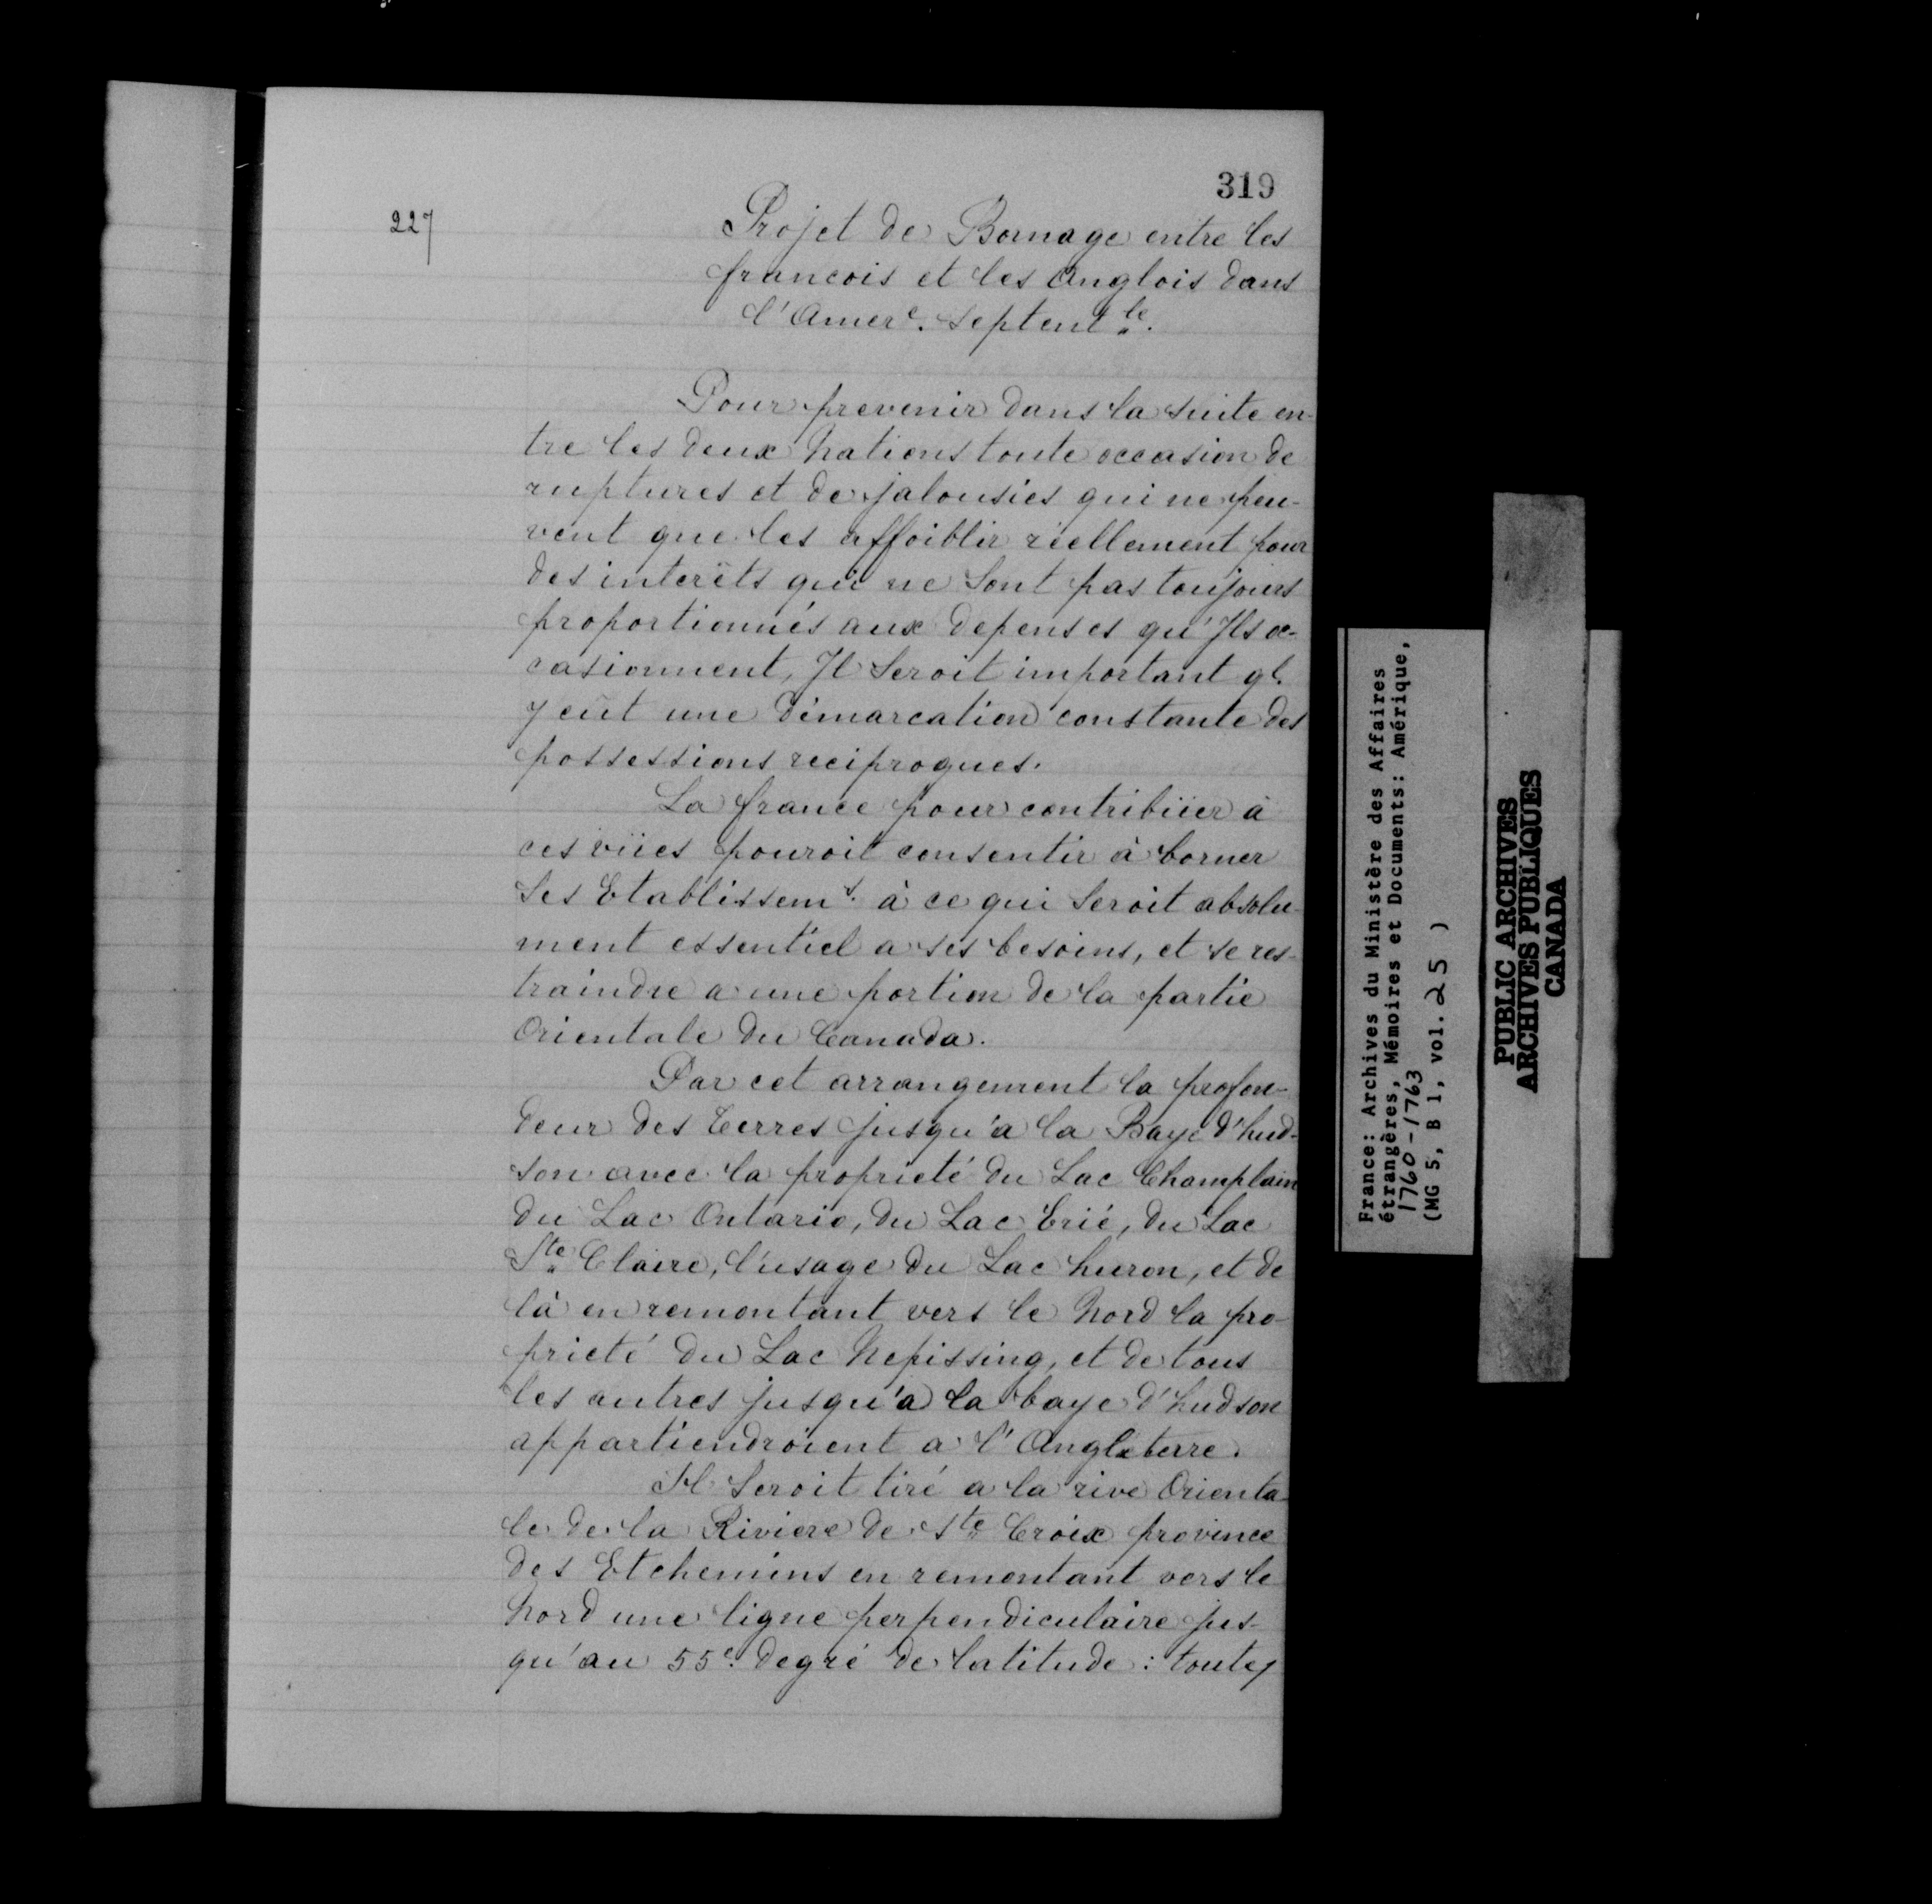 319
227
Projet de Bornage entre les
francois et les Anglois dans
l'Amere. Septent le.
Pour prevenir dans la suite en-
tre les deux Nations toute occasion de
ruptures et de jalousies qui ne peu-
vent que les affoiblir réellement pour
des interêts qui ne Sont pas toujours
proportionnés aux depenses qu'Ils oc-
casionnent, Il Seroit important ql.
y eût une démarcation constante des
possessions reciproques.
La france pour contribüer à
ces vües pouroit consentir à borner
Ses Etablissem s. à ce qui Seroit absolu-
ment essentiel a ses besoins, et se res-
traindre a une portion de la partie
Orientale du Canada.
Par cet arrangement la profon-
deur des terres jusqu'a la Baye d'hud-
son avec la proprieté du Lac Champlain
du Lac Ontario, du Lac Erié, du Lac
Ste Claire, l'usage du Lac huron, et de
là en remontant vers le Nord la pro-
prieté du Lac Nepissing, et de tous
les autres jusqu'a la baye d'hudson
appartiendroient a l'Angleterre.
Il Seroit tiré a la rive Orienta
le de la Riviere de Ste Croix province
des Etchemins en remontant vers le
Nord une ligne perpendiculaire jus-
qu'au 55e. degré de latitude : toutes
France: Archives du Ministère des Affaires
étrangères, Mémoires et Documents: Amérique,
1760-1763
(MG 5, B 1, vol. 25 )
PUBLIC ARCHIVES
ARCHIVES PUBLIQUES
CANADA